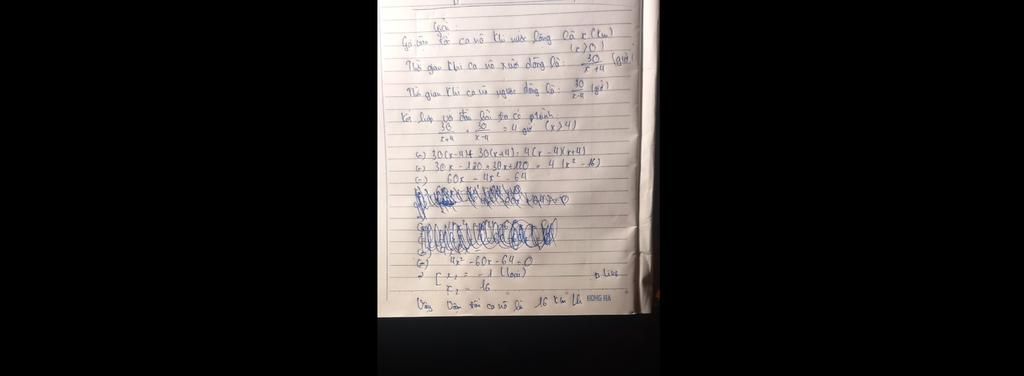 Giải:
Gọi vận tốc ca nô khi nước lặng là x (km)
(x > 0)
Thời gian khi ca nô xuôi dòng là: 30/x+4 (giờ)
Thời gian khi ca nô ngược dòng là: 30/x-4 (giờ)
ta có
30/x+4 + 30/x-4 = 4 giờ (x > 4)
30(x-4) + 30(x+4) = 4(x-4)(x+4)
30x - 120 + 30x + 120 = 4(x² - 16)
60x = 4x² - 64
4x² - 60x - 64 = 0
x₁ = -1 (loại)
x₂ = 16
Vậy vận tốc ca nô là 16 km/h
HONG HA